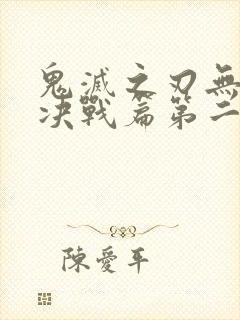 鬼滅之刃無
决戰篇第二
陳愛平